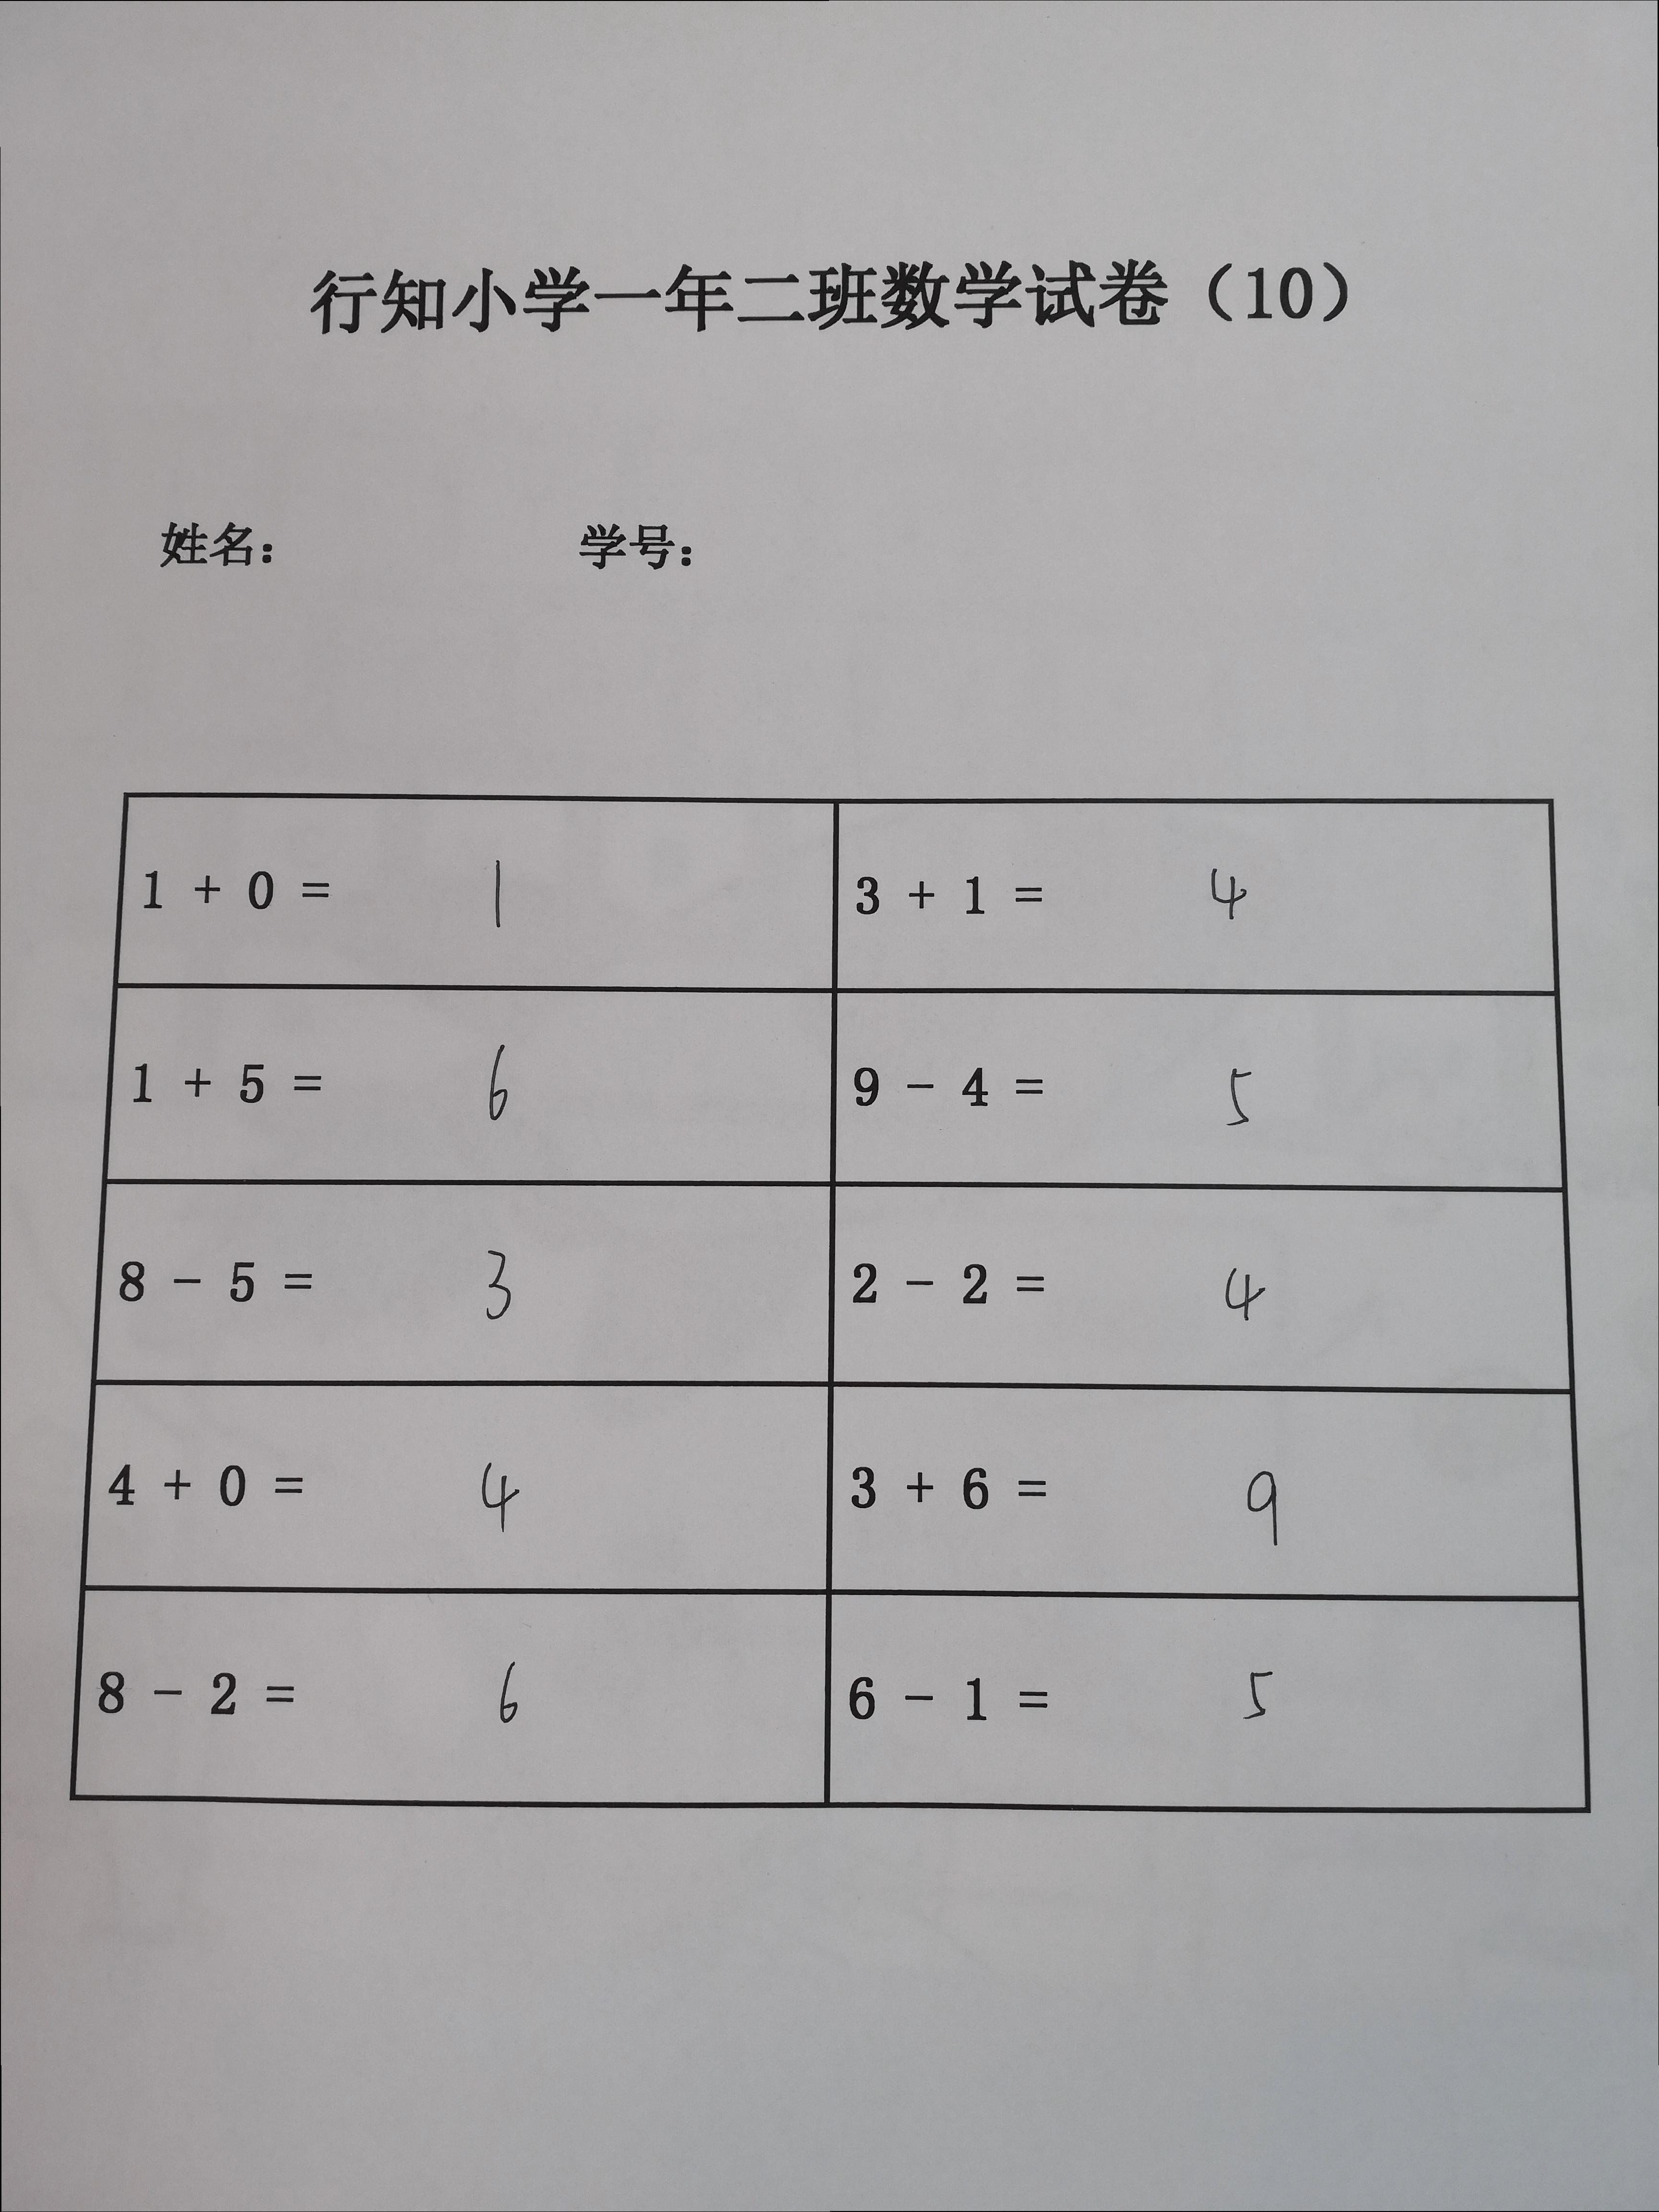 行知小学一年二班数学试卷（10）
姓名： 学号：
1 + 0 = 1 3 + 1 = 4
1 + 5 = 6 9 - 4 = 5
8 - 5 = 3 2 - 2 = 4
4 + 0 = 4 3 + 6 = 9
8 - 2 = 6 6 - 1 = 5